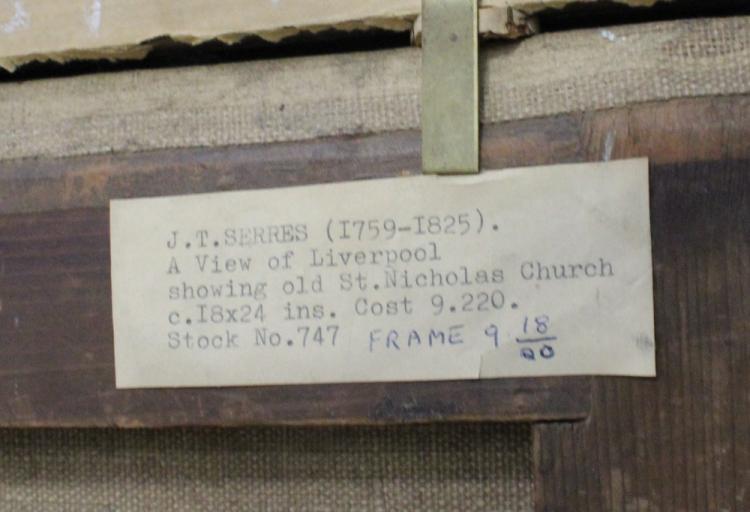 J.T.SERRES (I759-I825).
A View of Liverpool
showing old St.Nicholas Church
c.I8x24 ins. Cost 9.220.
Stock No.747 FRAME 9 18/00